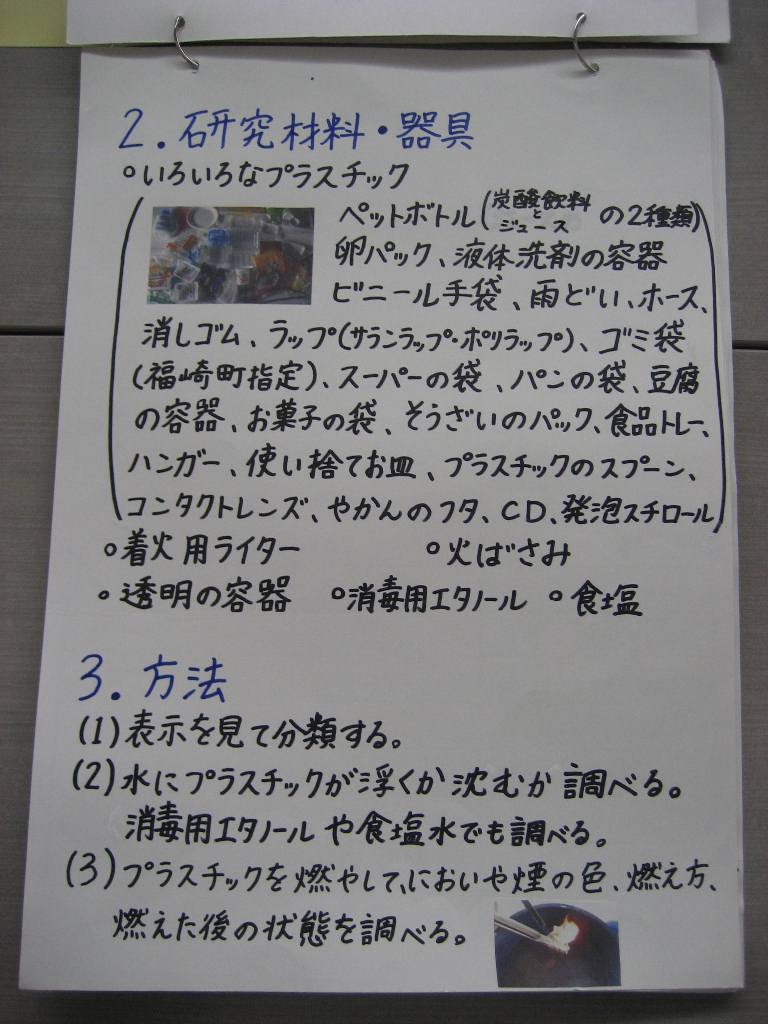 2.研究材料・器具
○いろいろなプラスチック
ペットボトル(炭酸飲料とジュースの2種類)
卵パック、液体洗剤の容器
ビニール手袋、雨どい、ホース、
消しゴム、ラップ(サランラップ・ポリラップ)、ゴミ袋
(福崎町指定)、スーパーの袋、パンの袋、豆腐
の容器、お菓子の袋、そうざいのパック、食品トレー、
ハンガー、使い捨てお皿、プラスチックのスプーン、
コンタクトレンズ、やかんのフタ、CD、発泡スチロール)
○着火用ライター ○火ばさみ
○透明の容器 ○消毒用エタノール ○食塩
3.方法
(1)表示を見て分類する。
(2)水にプラスチックが浮くか沈むか調べる。
消毒用エタノールや食塩水でも調べる。
(3)プラスチックを燃やして、においや煙の色、燃え方、
燃えた後の状態を調べる。